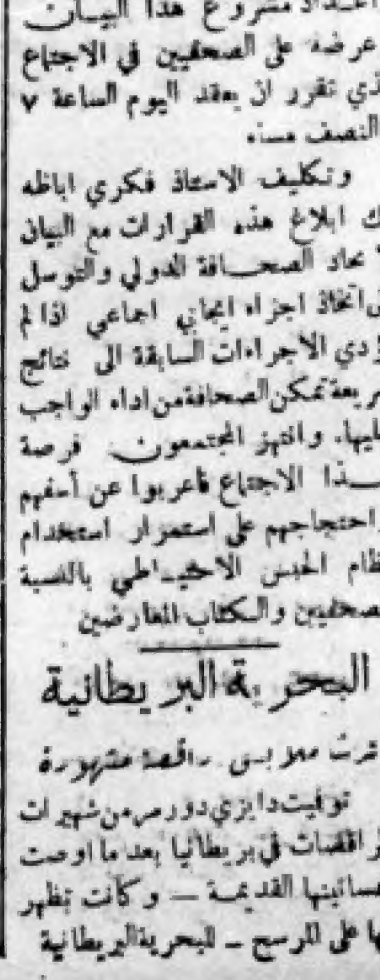 اعـداد مشروع هذا البيـان
عرضه على الصحفيين في الاجتماع
ذي تقرر ان يعقد اليوم الساعة ٧
النصف مساء
وتكليف الاستاذ فكري اباظه
ك ابلاغ هذه القرارات مع البيان
حاد الصحـافة الدولي والتوسل
اتخاذ اجراء ايجابي اجماعي اذا لم
ؤدي الاجراءات السابقة الى نتائج
ريعة تمكن الصحافة من اداء الواجب
ليها. وانتهز المجتمعون فرصة
ـذا الاجتماع فأعربوا عن أسفهم
احتجاجهم على استمرار استخدام
ظام الحبس الاحتيـاطي بالنسبة
صحفيين والكتاب المعارضين
البحرية البريطانية
ترث ملابس راقصة مشهورة
توفيت دايزي دورمر من شهيرات
راقصات في بريطانيا بعد ما اوصت
فساتينها القديمـة — وكانت تظهر
ها على المرسح — للبحرية البريطانية